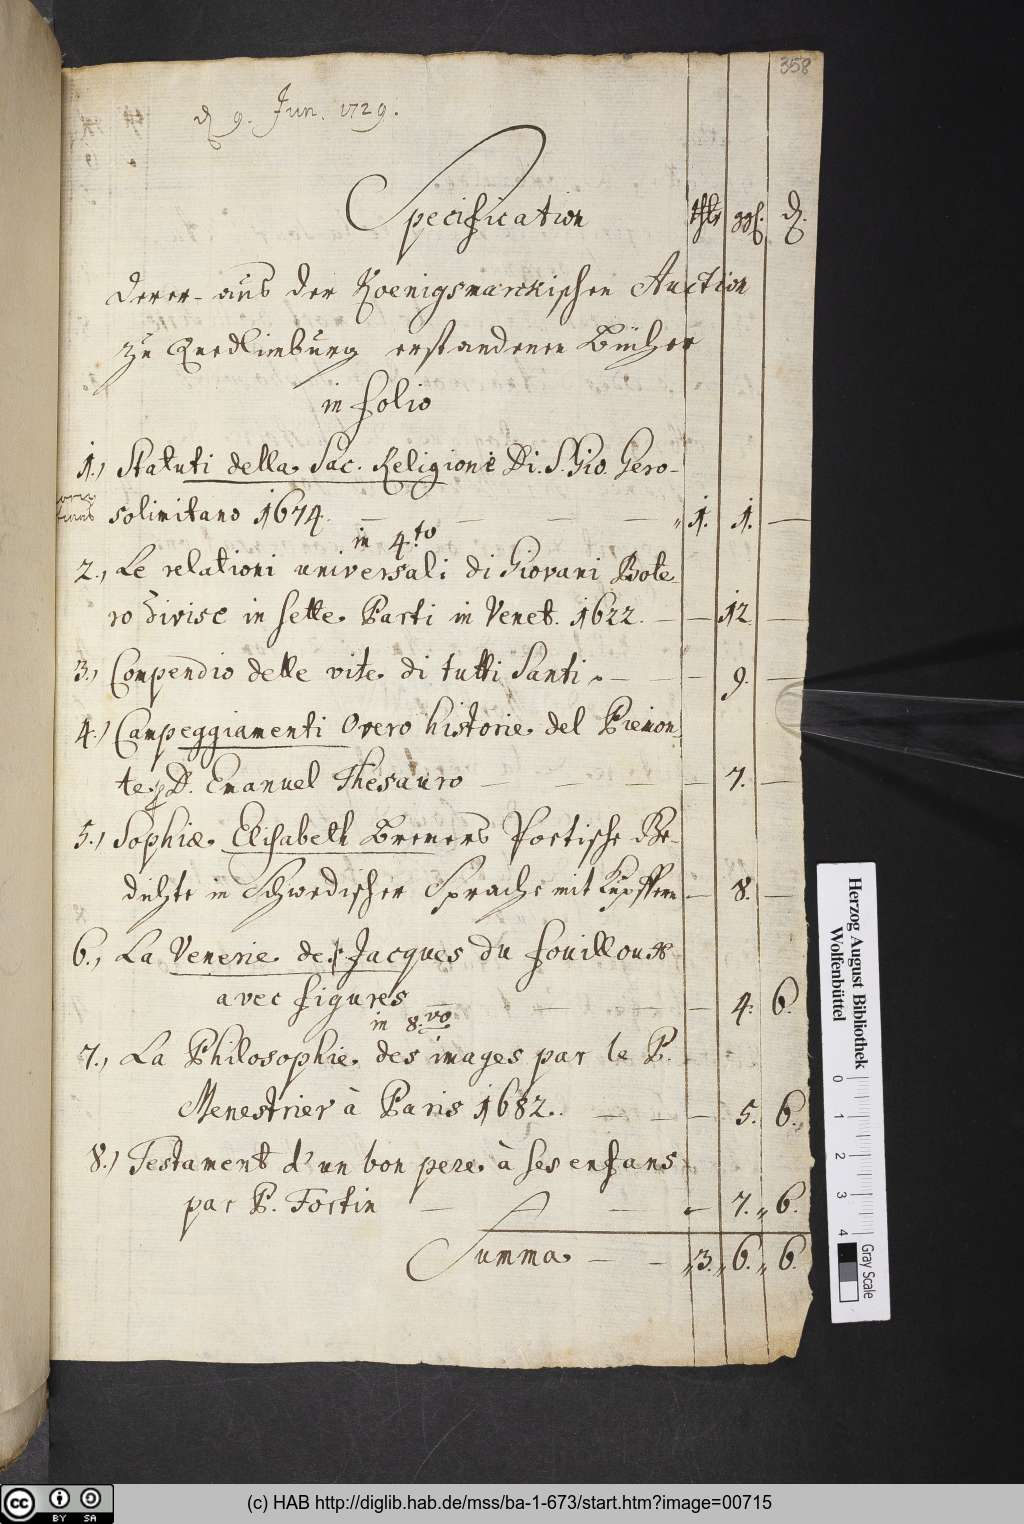 358
d. 9. Jun. 1729.
Specification
thlr ggl. d.
derer aus der Koenigsmarckischen Auction
zu Quedlimburg erstandenen Bücher
in folio
1., Statuti della Sac. Religione Di. S. Gio. Gero-
solimitano 1674. — — — — 1. 1. —
in 4.to
2., Le relationi universali di Giovani Bote-
ro divise in sette Parti in Venet. 1622. — — 12. —
3., Compendio delle vite di tutti Santi — — — 9. —
4., Campeggiamenti Overo historie del Piemon-
te D. Emanuel Thesauro — — — — 7. —
5., Sophiæ Elisabeth Bremers Poetische Ge-
dichte in Schwedischer Sprache mit Kupffern — 8. —
6., La Venerie de Jacques du fouilloux
avec figures — — — — 4. 6.
in 8.vo
7., La Philosophie des images par le P.
Menestrier à Paris 1682. — — — 5. 6.
8., Testament d'un bon pere à ses enfans
par P. Fortin — — — 7. 6.
Summa — — 3. 6. 6.
Herzog August Bibliothek
Wolfenbüttel
0 1 2 3 4
Gray Scale
cc BY SA
(c) HAB http://diglib.hab.de/mss/ba-1-673/start.htm?image=00715